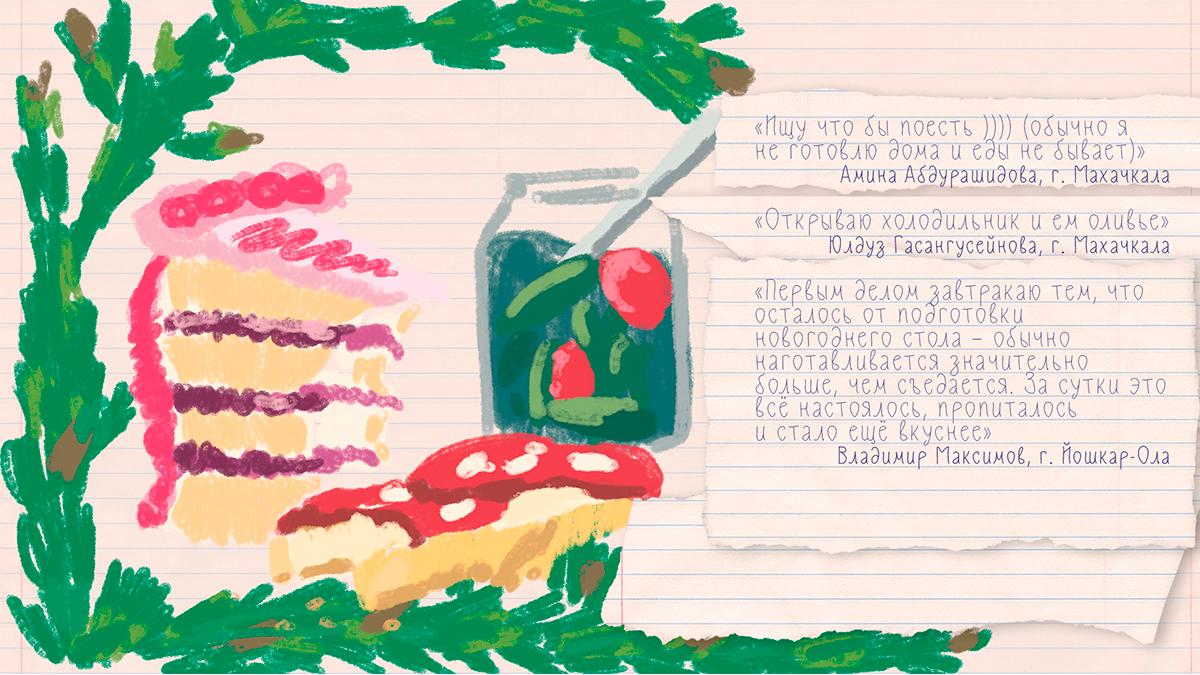 «Ищу что бы поесть )))) (обычно я
не готовлю дома и еды не бывает)»
Амина Абдурашидова, г. Махачкала
«Открываю холодильник и ем оливье»
Юлдуз Гасангусейнова, г. Махачкала
«Первым делом завтракаю тем, что
осталось от подготовки
новогоднего стола – обычно
наготавливается значительно
больше, чем съедается. За сутки это
всё настоялось, пропиталось
и стало ещё вкуснее»
Владимир Максимов, г. Йошкар-Ола